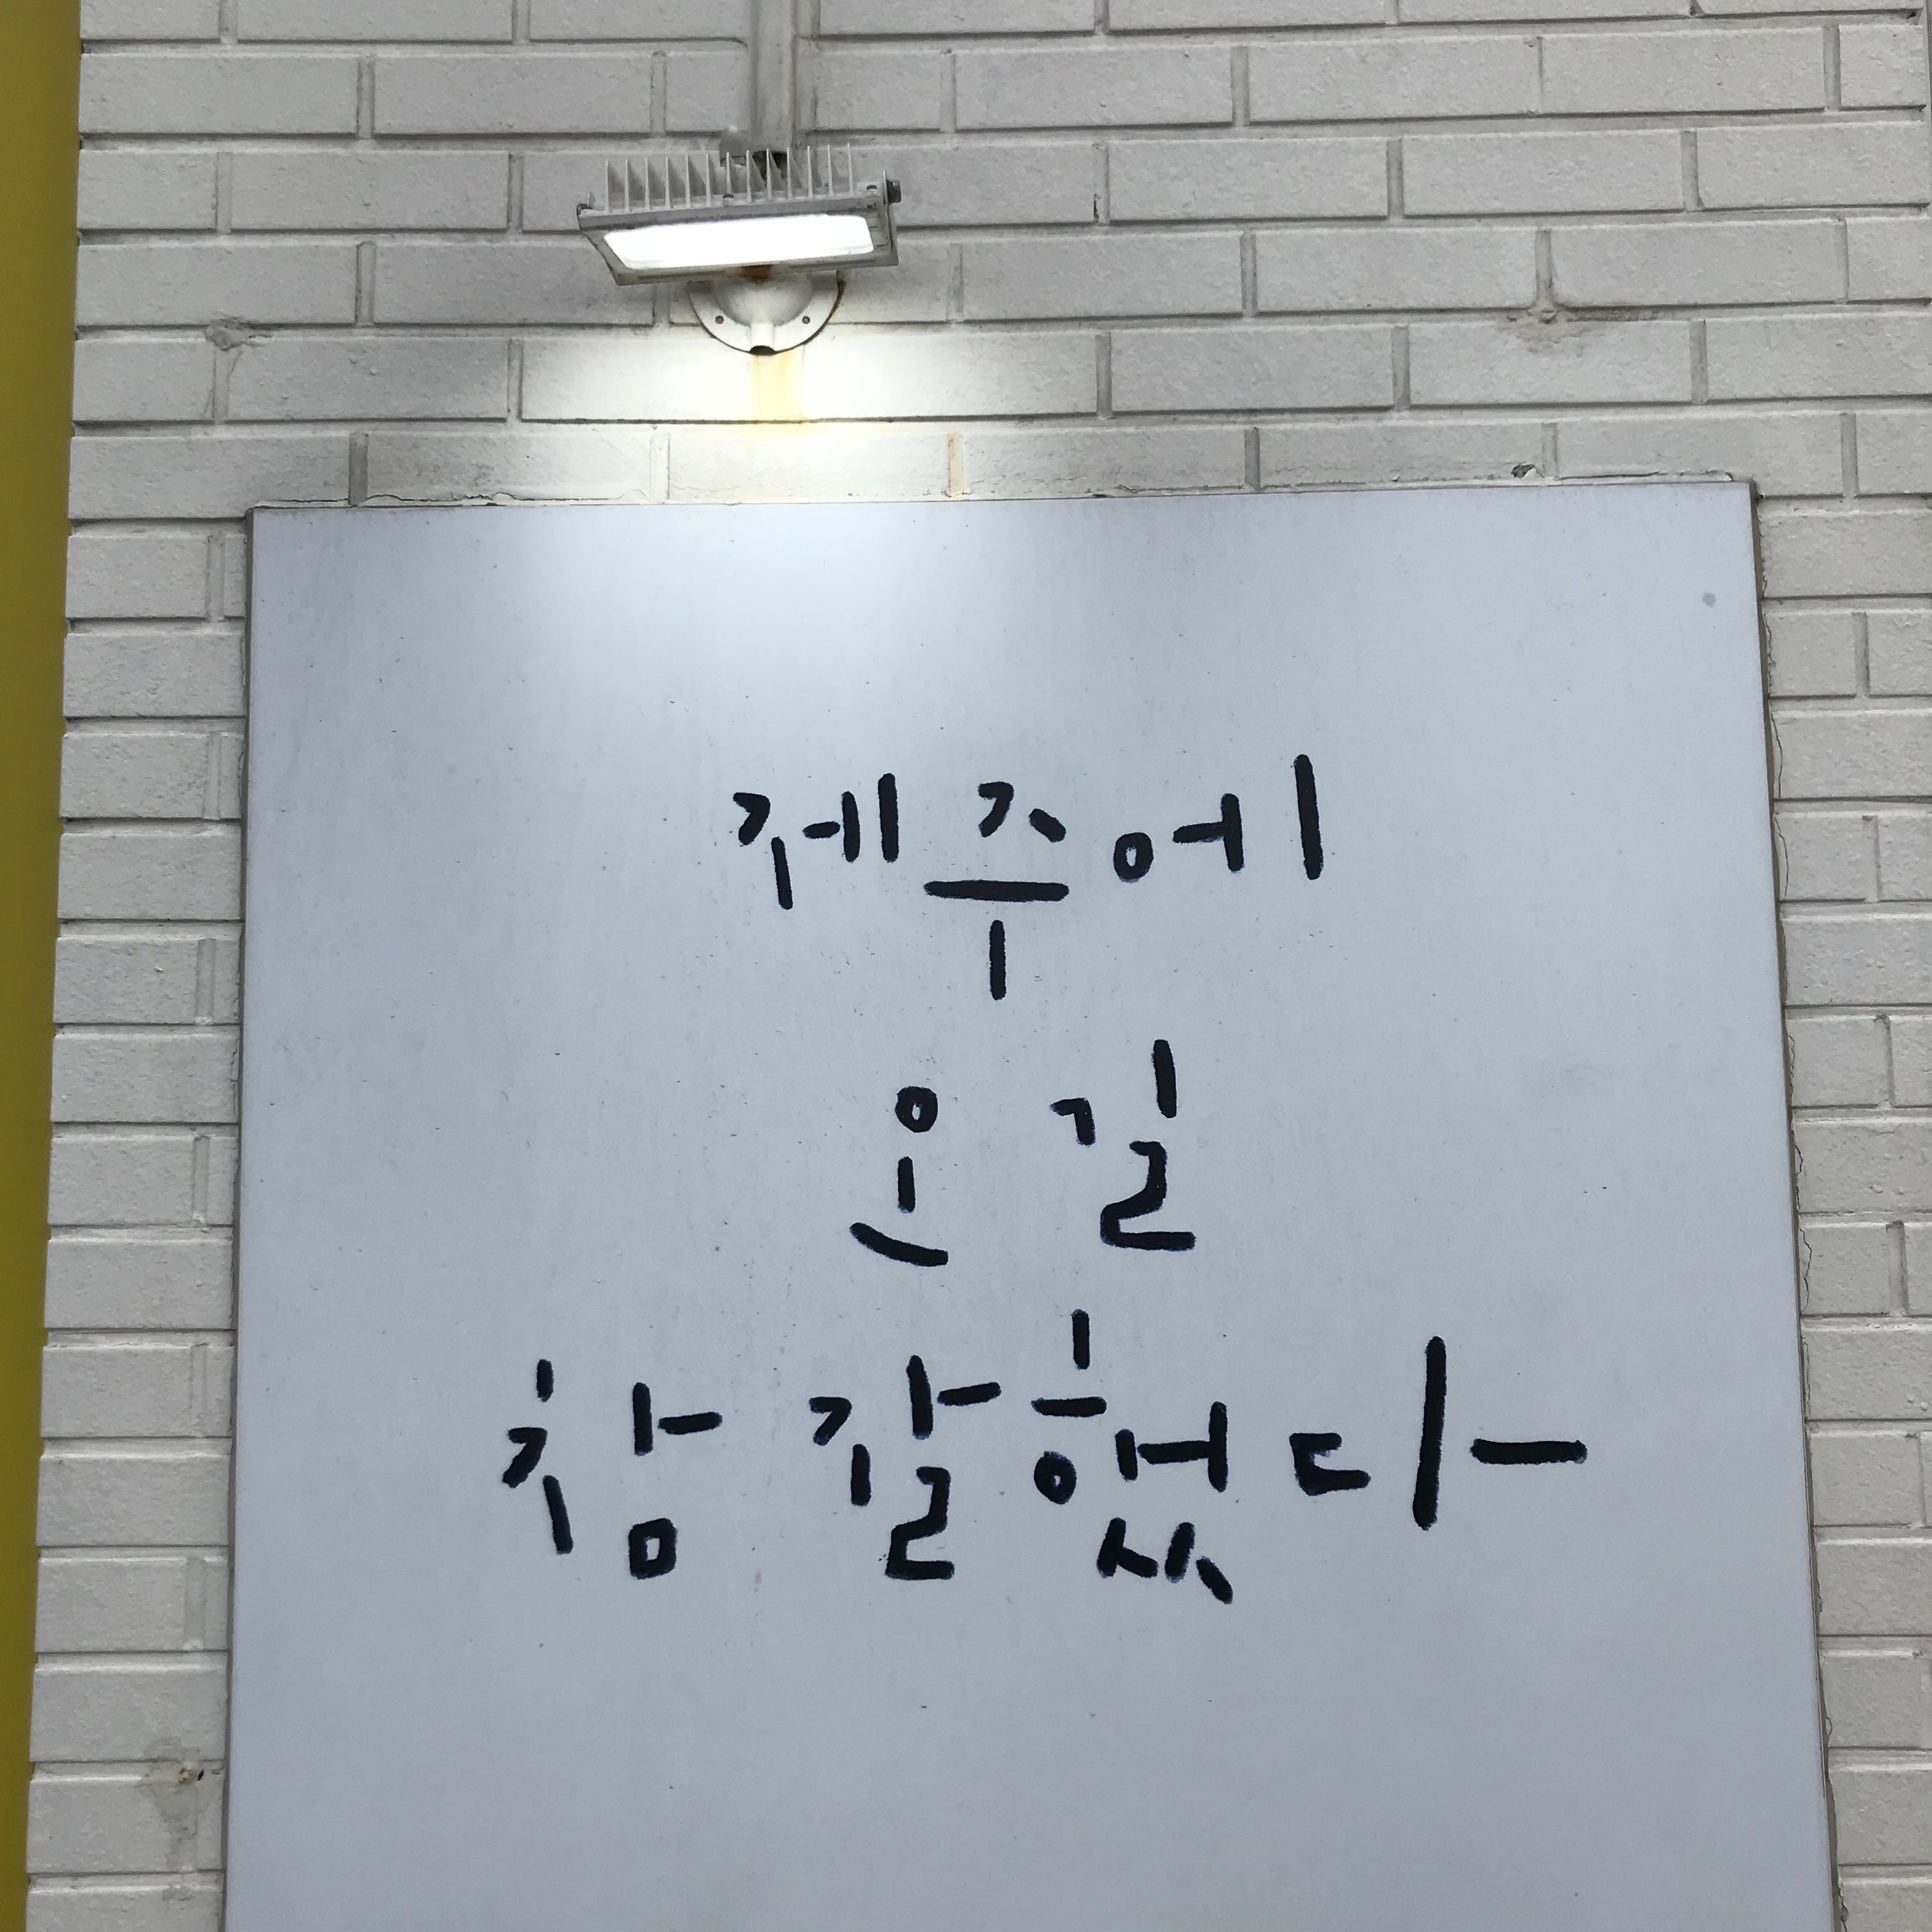 제주에
온 길
참 잘했다